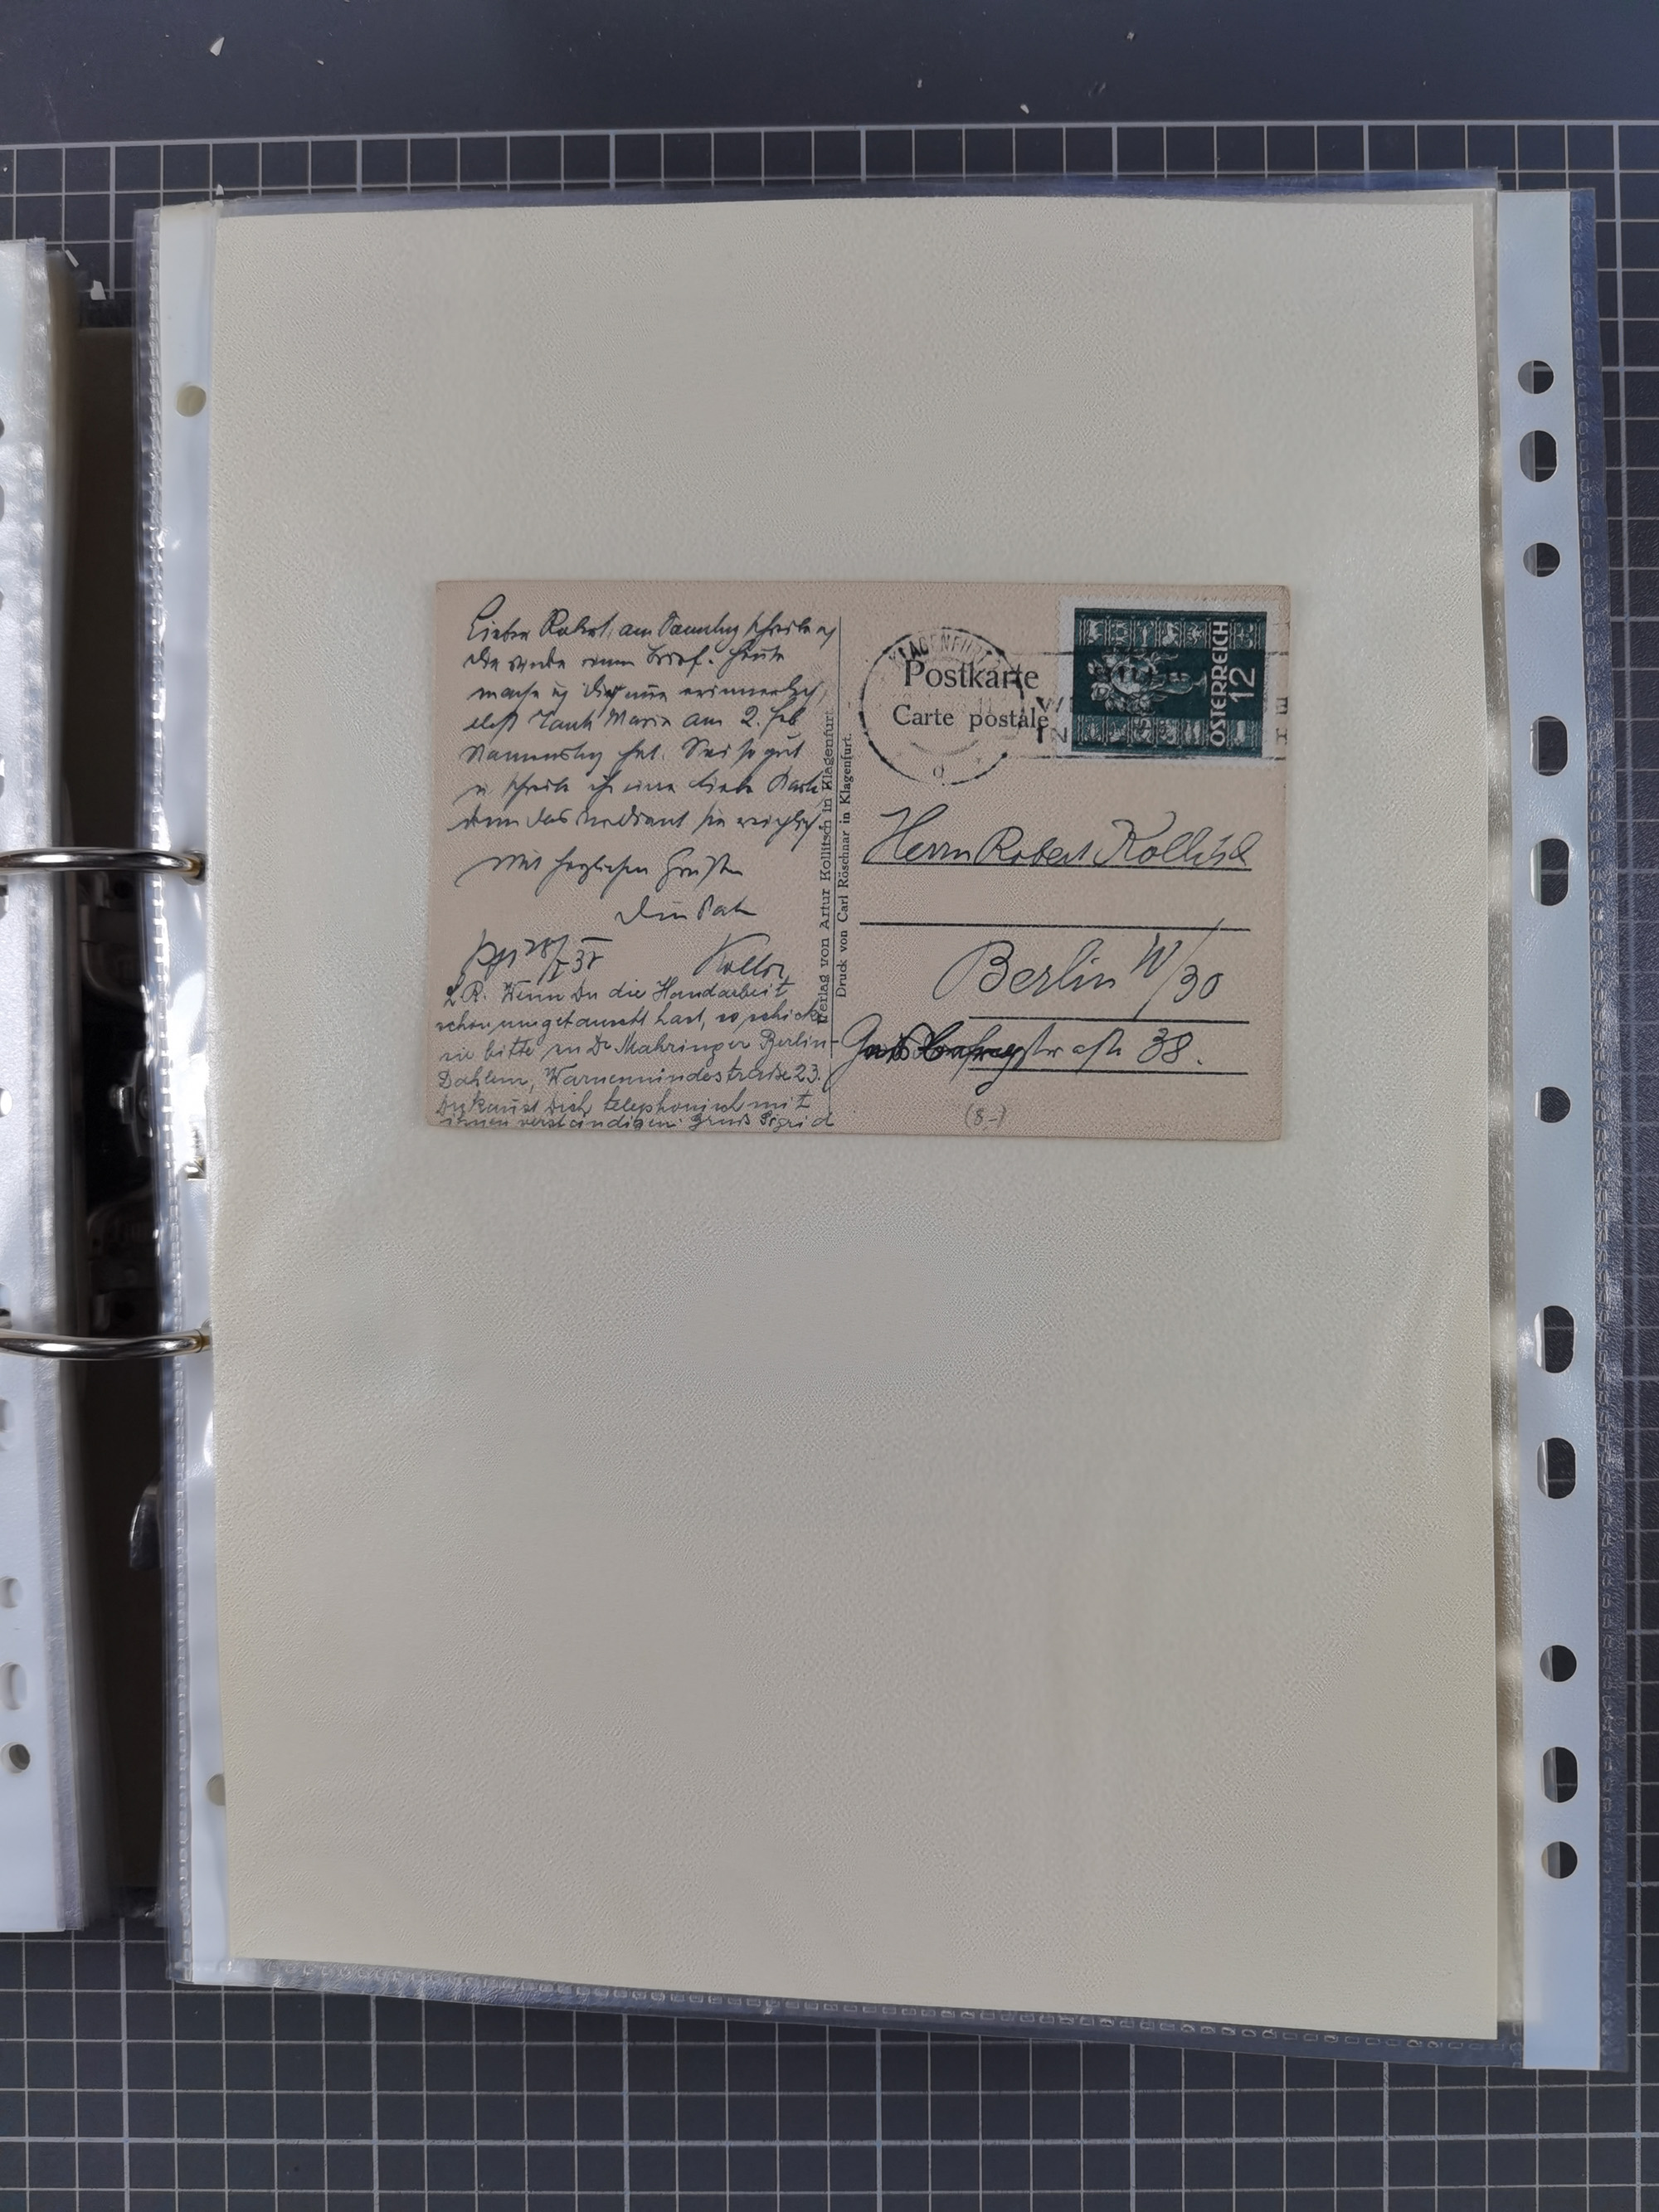 Lieber Robert, am Samstag schreibe ich
Dir wieder einen Brief. Heute
mache ich Dich nur erinnerlich,
daß Tante Maria am 2. Feb
Namenstag hat. Sei so gut
u. schreibe ihr eine liebe Karte,
denn das verdient sie reichlich.
Mit herzlichen Grüßen
Dein Vater
Kfgt 28/I 38
L.R. Wenn Du die Handarbeit
schon umgetauscht hast, so schicke
sie bitte an Dr Mahringer Berlin-
Dahlem, Warnemündestraße 23.
Du kannst Dich telephonisch mit
ihnen verständigen. Gruß Sigrid
Verlag von Artur Kollitsch in Klagenfurt.
Druck von Carl Röschnar in Klagenfurt.
KLAGENFURT
Postkarte
Carte postale
ÖSTERREICH
12
Herrn Robert Kollitsch
Berlin W/30
straße 38.
(8,-)